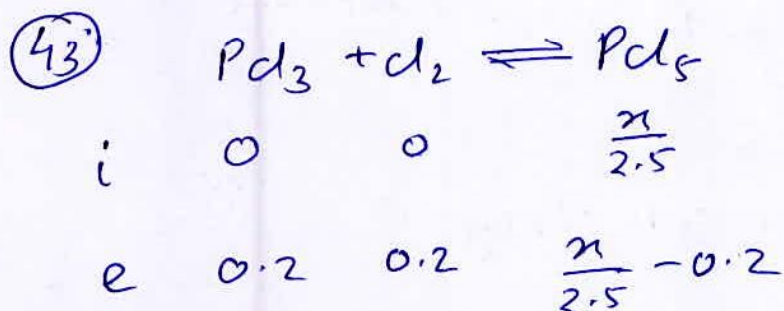 43. PCl₃ + Cl₂ ⇌ PCl₅
i 0 0 x/2.5
e 0.2 0.2 x/2.5 - 0.2